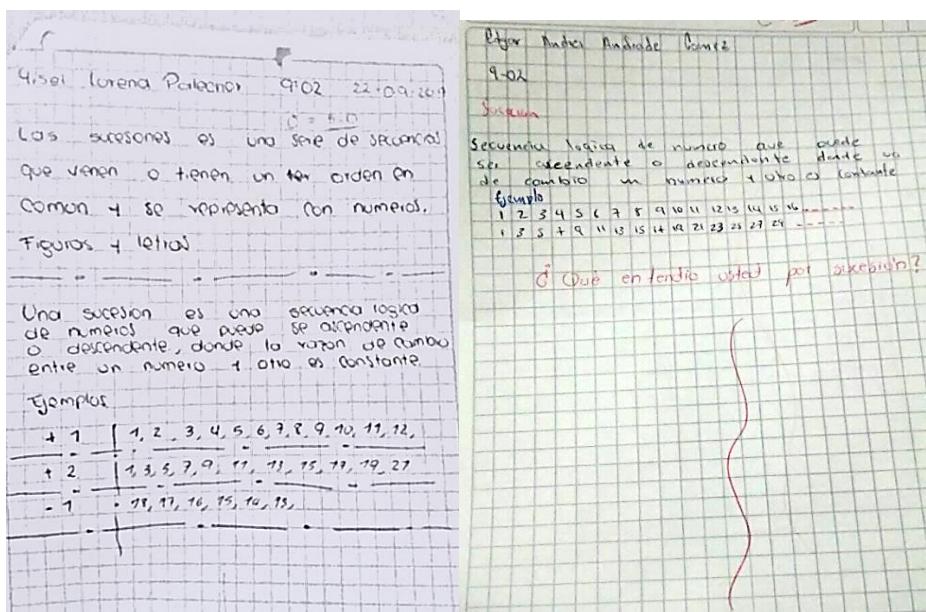 Yisel Lorena Palechor 9:02 22:09:201
C = 5.0
Las sucesones es una serie de secuencias
que vienen o tienen un orden en
comun y se representa con numeros.
Figuras y letras
Una sucesion es una secuencia logica
de numeros que puede se ascendente
o descendente, donde la razon de cambio
entre un numero y otro es constante.
Ejemplos
+ 1 1, 2, 3, 4, 5, 6, 7, 8, 9, 10, 11, 12,
+ 2 1, 3, 5, 7, 9, 11, 13, 15, 17, 19, 21
- 1 18, 17, 16, 15, 14, 13,
Edgar Andres Andrade Gomez
9-02
Secuencia logica de numero que puede
ser ascendente o descendente donde
de cambio un numero y otro es constante
Ejemplo
1 2 3 4 5 6 7 8 9 10 11 12 13 14 15 16
1 3 5 7 9 11 13 15 17 19 21 23 25 27 29
¿Qué entendio usted por sucesión?